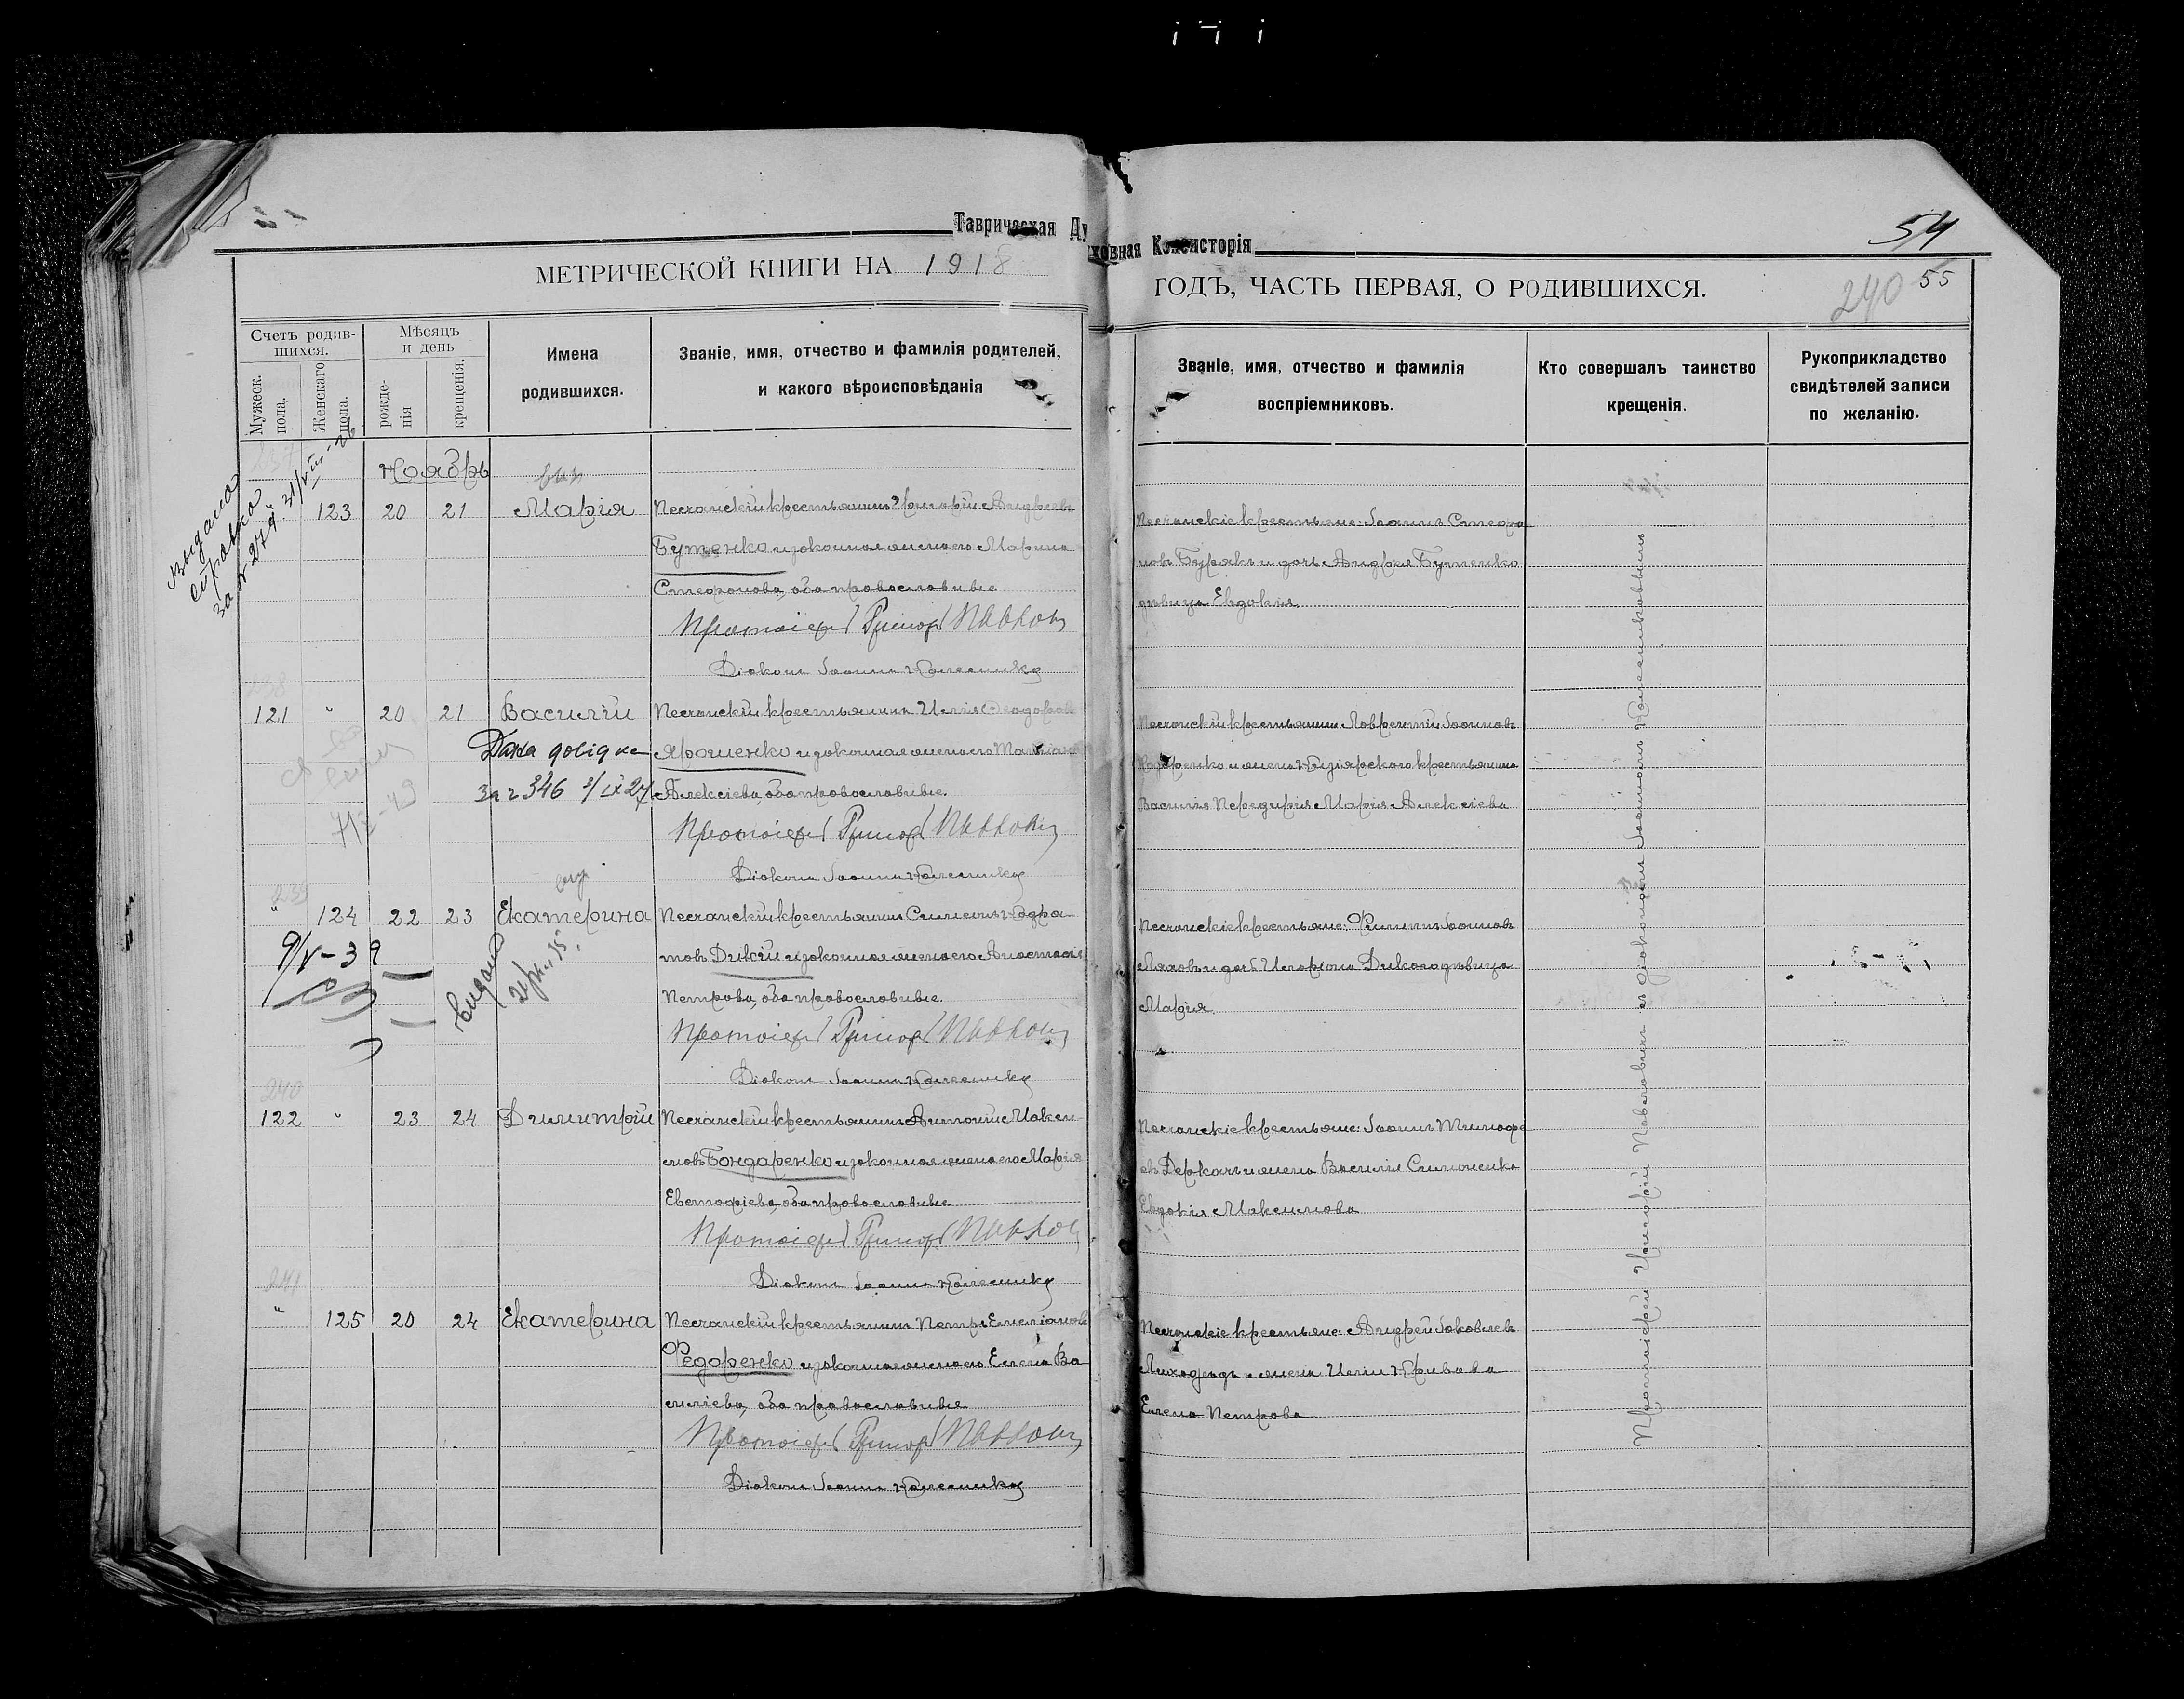 Таврическая Духовная Консисторія
54
МЕТРИЧЕСКОЙ КНИГИ НА 1918
ГОДЪ, ЧАСТЬ ПЕРВАЯ, О РОДИВШИХСЯ.
240 55
Счетъ родив-
шихся.
Мужеск.
пола.
Женскаго
пола.
Мѣсяцъ
и день
рожде-
нія
крещенія.
Имена
родившихся.
Званіе, имя, отчество и фамилія родителей,
и какого вѣроисповѣданія
Званіе, имя, отчество и фамилія
воспріемниковъ.
Кто совершалъ таинство
крещенія.
Рукоприкладство
свидѣтелей записи
по желанію.
237
Ноябрь
выдана
справка
за № 274
123 20 21 Марія Песчанскій крестьянинъ Григорій Андреевъ
Бутенко и законная жена его Марина
Стефанова, оба православные.
Протоіерей Григорій Павловъ
Діаконъ Іоаннъ Колесниковъ
Песчанскіе крестьяне: Іоаннъ Стефа
новъ Бурякъ и дочь Андрея Бутенко
дѣвица Евдокія.
238
121 " 20 21 Василій Песчанскій крестьянинъ Илія Феодоровъ
Ярошенко и законная жена его
Алексіева, оба православные.
Дана довідка
за № 346 2/IX 27
Протоіерей Григорій Павловъ
Діаконъ Іоаннъ Колесниковъ
Песчанскій крестьянинъ Лаврентій Іоанновъ
и жена крестьянина
Василія Марія Алексіева
239
" 124 22 23 Екатерина Песчанскій крестьянинъ Симеонъ Кодра-
товъ Дикій и законная жена его Анастасія
Петрова, оба православные.
9/V-39
видано
Протоіерей Григорій Павловъ
Діаконъ Іоаннъ Колесниковъ
Песчанскіе крестьяне: Филиппъ Іоанновъ
Ляховъ и дочь Иларіона Дикаго дѣвица
Марія.
240
122 " 23 24 Димитрій Песчанскій крестьянинъ Антоній Макси-
мовъ Бондаренко и законная жена его Марія
Евстафіева, оба православные
Протоіерей Григорій Павловъ
Діаконъ Іоаннъ Колесниковъ
Песчанскіе крестьяне: Іоаннъ Тимофе
евъ Деркачъ и жена Василія Симоненка
Евдокія Максимова
241
" 125 20 24 Екатерина Песчанскій крестьянинъ Петръ Емеліановъ
Федоренко и законная жена его Елена Ва
силіева, оба православные
Протоіерей Григорій Павловъ
Діаконъ Іоаннъ Колесниковъ
Песчанскіе крестьяне: Андрей Іаковлевъ
Лиходѣдъ и жена Иліи
Елена Петрова
Протоіерей Григорій Павловичъ Павловъ съ діакономъ Іоанномъ Колесниковымъ